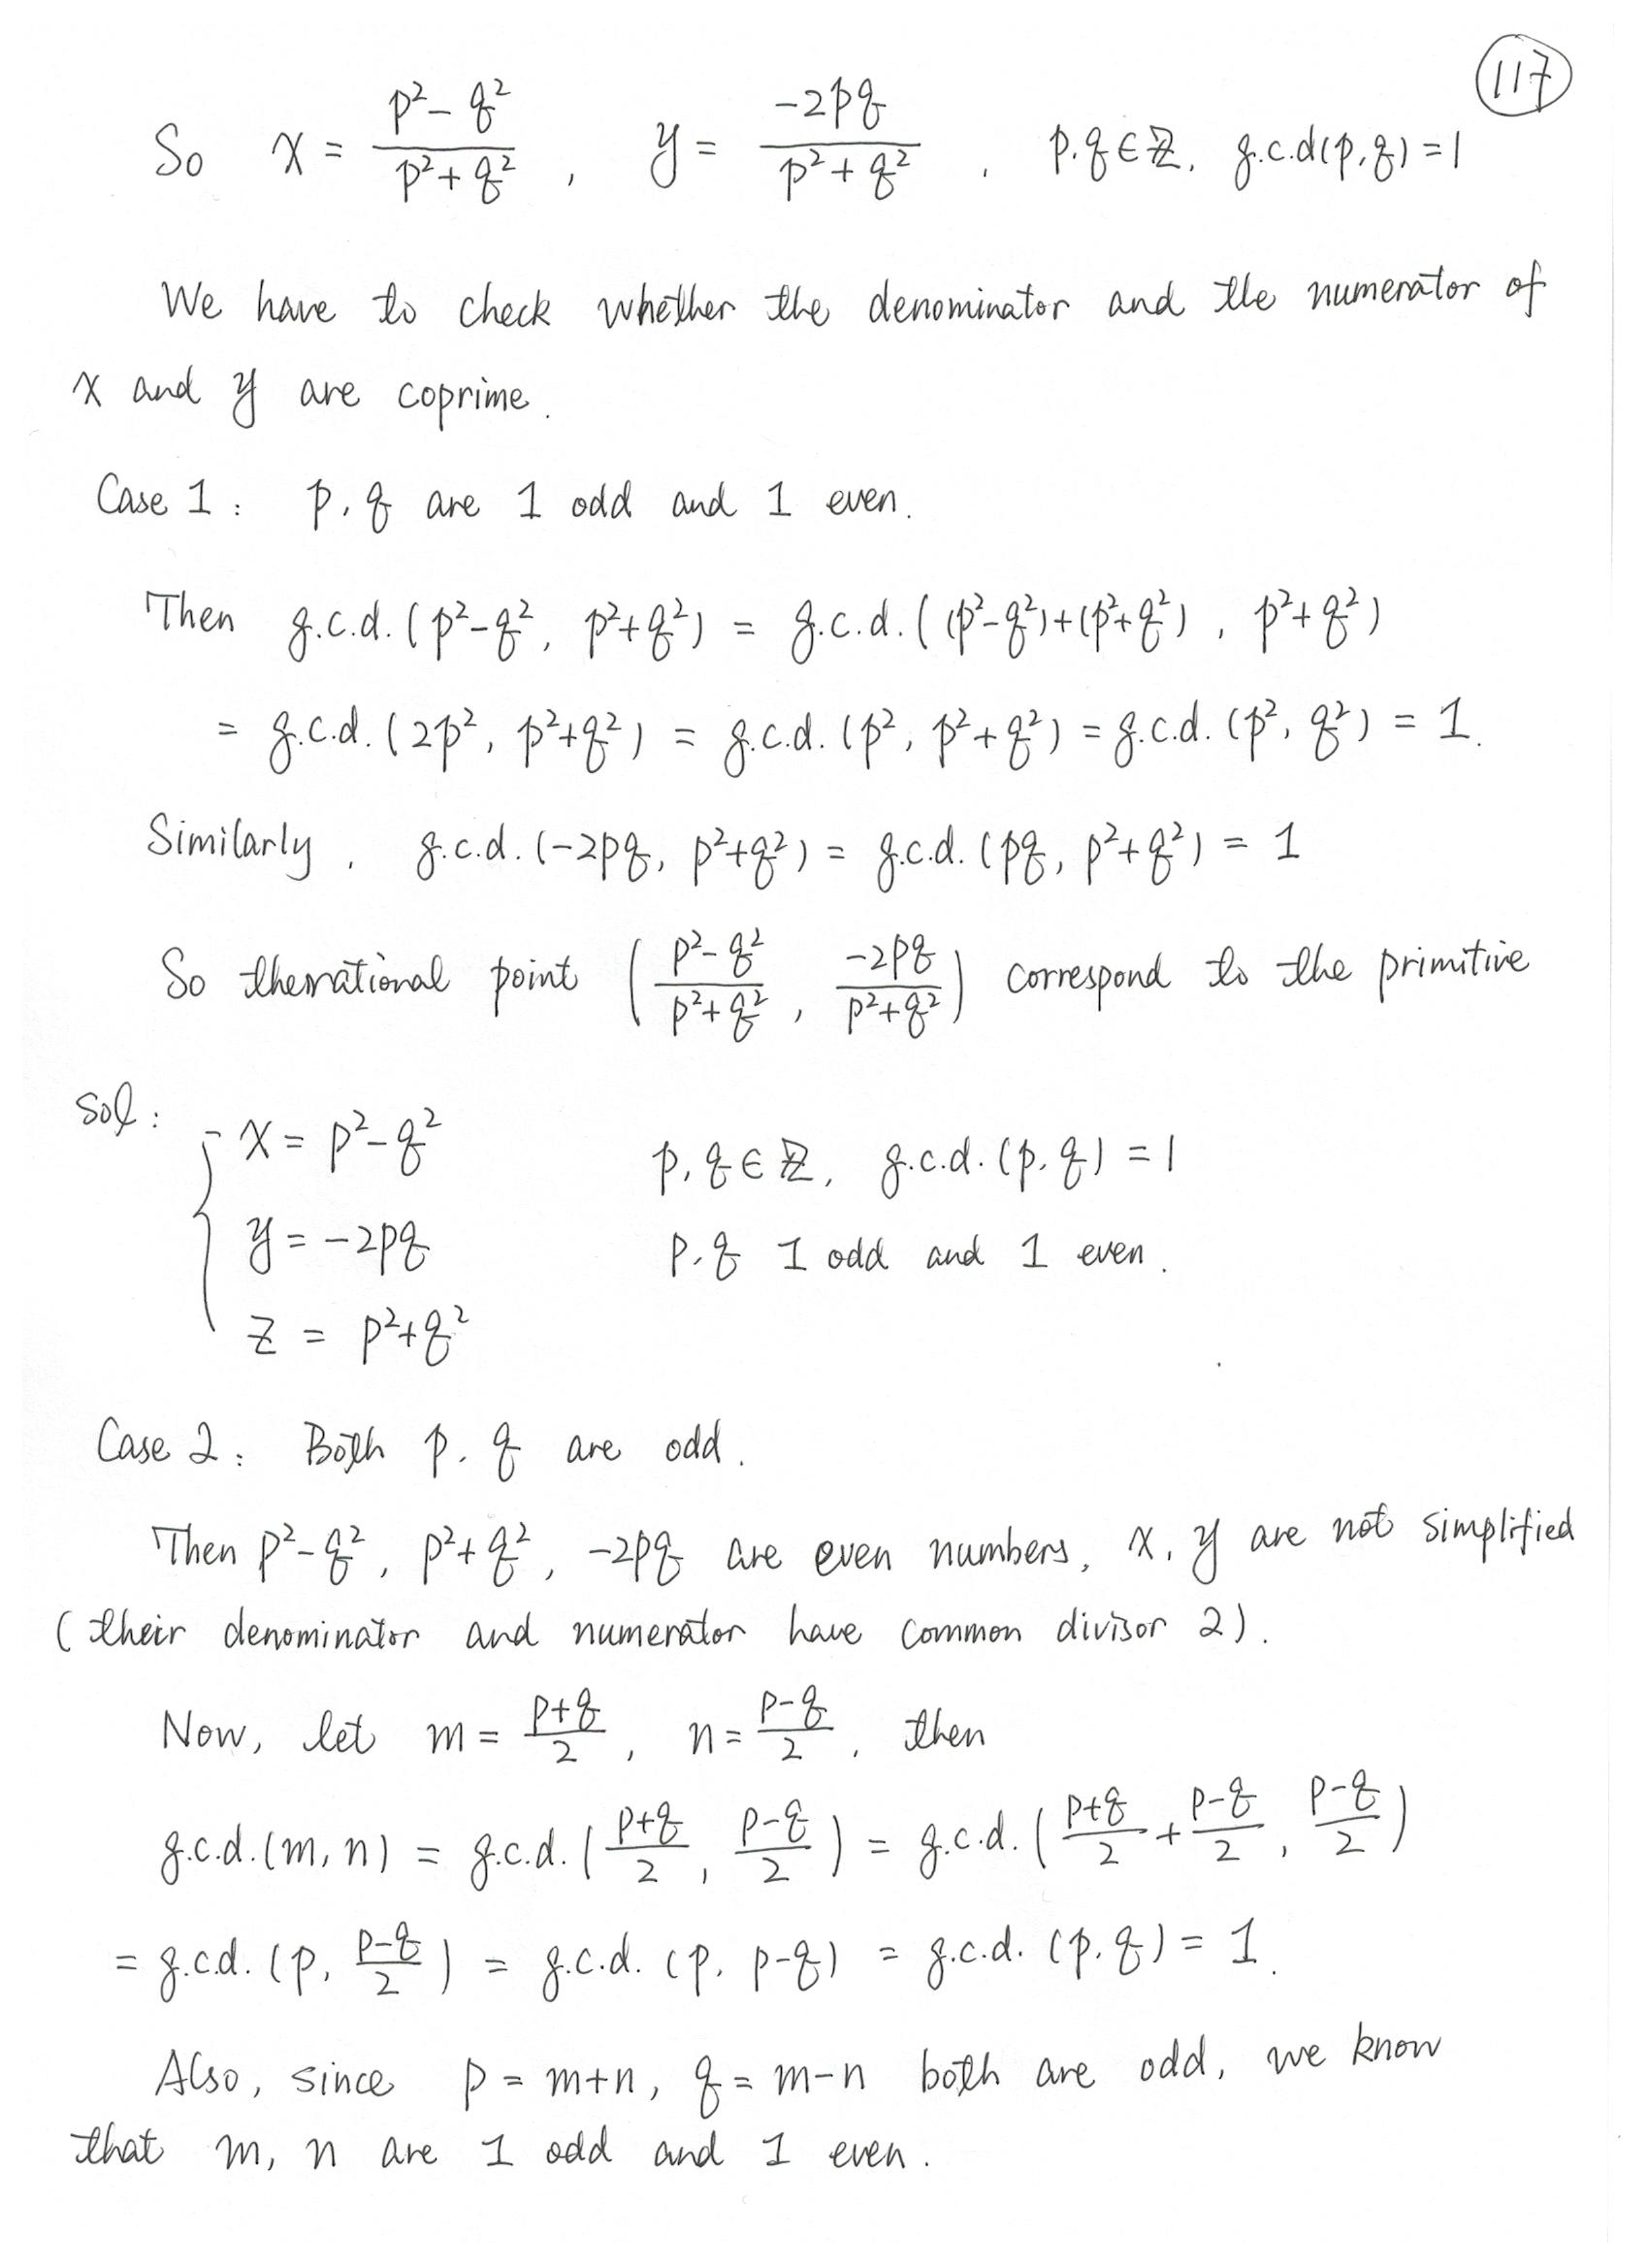 117
So x = \frac{p²-q²}{p²+q²}, y = \frac{-2pq}{p²+q²}, p, q ∈ ℤ, g.c.d(p, q) = 1
We have to check whether the denominator and the numerator of
x and y are coprime.
Case 1: p, q are 1 odd and 1 even.
Then g.c.d. (p²-q², p²+q²) = g.c.d. ((p²-q²)+(p²+q²), p²+q²)
= g.c.d. (2p², p²+q²) = g.c.d. (p², p²+q²) = g.c.d. (p², q²) = 1.
Similarly, g.c.d. (-2pq, p²+q²) = g.c.d. (pq, p²+q²) = 1
So the rational point (\frac{p²-q²}{p²+q²}, \frac{-2pq}{p²+q²}) correspond to the primitive
sol:
x = p²-q² p, q ∈ ℤ, g.c.d. (p, q) = 1
y = -2pq p, q 1 odd and 1 even.
z = p²+q²
Case 2: Both p, q are odd.
Then p²-q², p²+q², -2pq are even numbers, x, y are not simplified
(their denominator and numerator have common divisor 2).
Now, let m = \frac{p+q}{2}, n = \frac{p-q}{2}, then
g.c.d. (m, n) = g.c.d. (\frac{p+q}{2}, \frac{p-q}{2}) = g.c.d. (\frac{p+q}{2} + \frac{p-q}{2}, \frac{p-q}{2})
= g.c.d. (p, \frac{p-q}{2}) = g.c.d. (p, p-q) = g.c.d. (p, q) = 1.
Also, since p = m+n, q = m-n both are odd, we know
that m, n are 1 odd and 1 even.